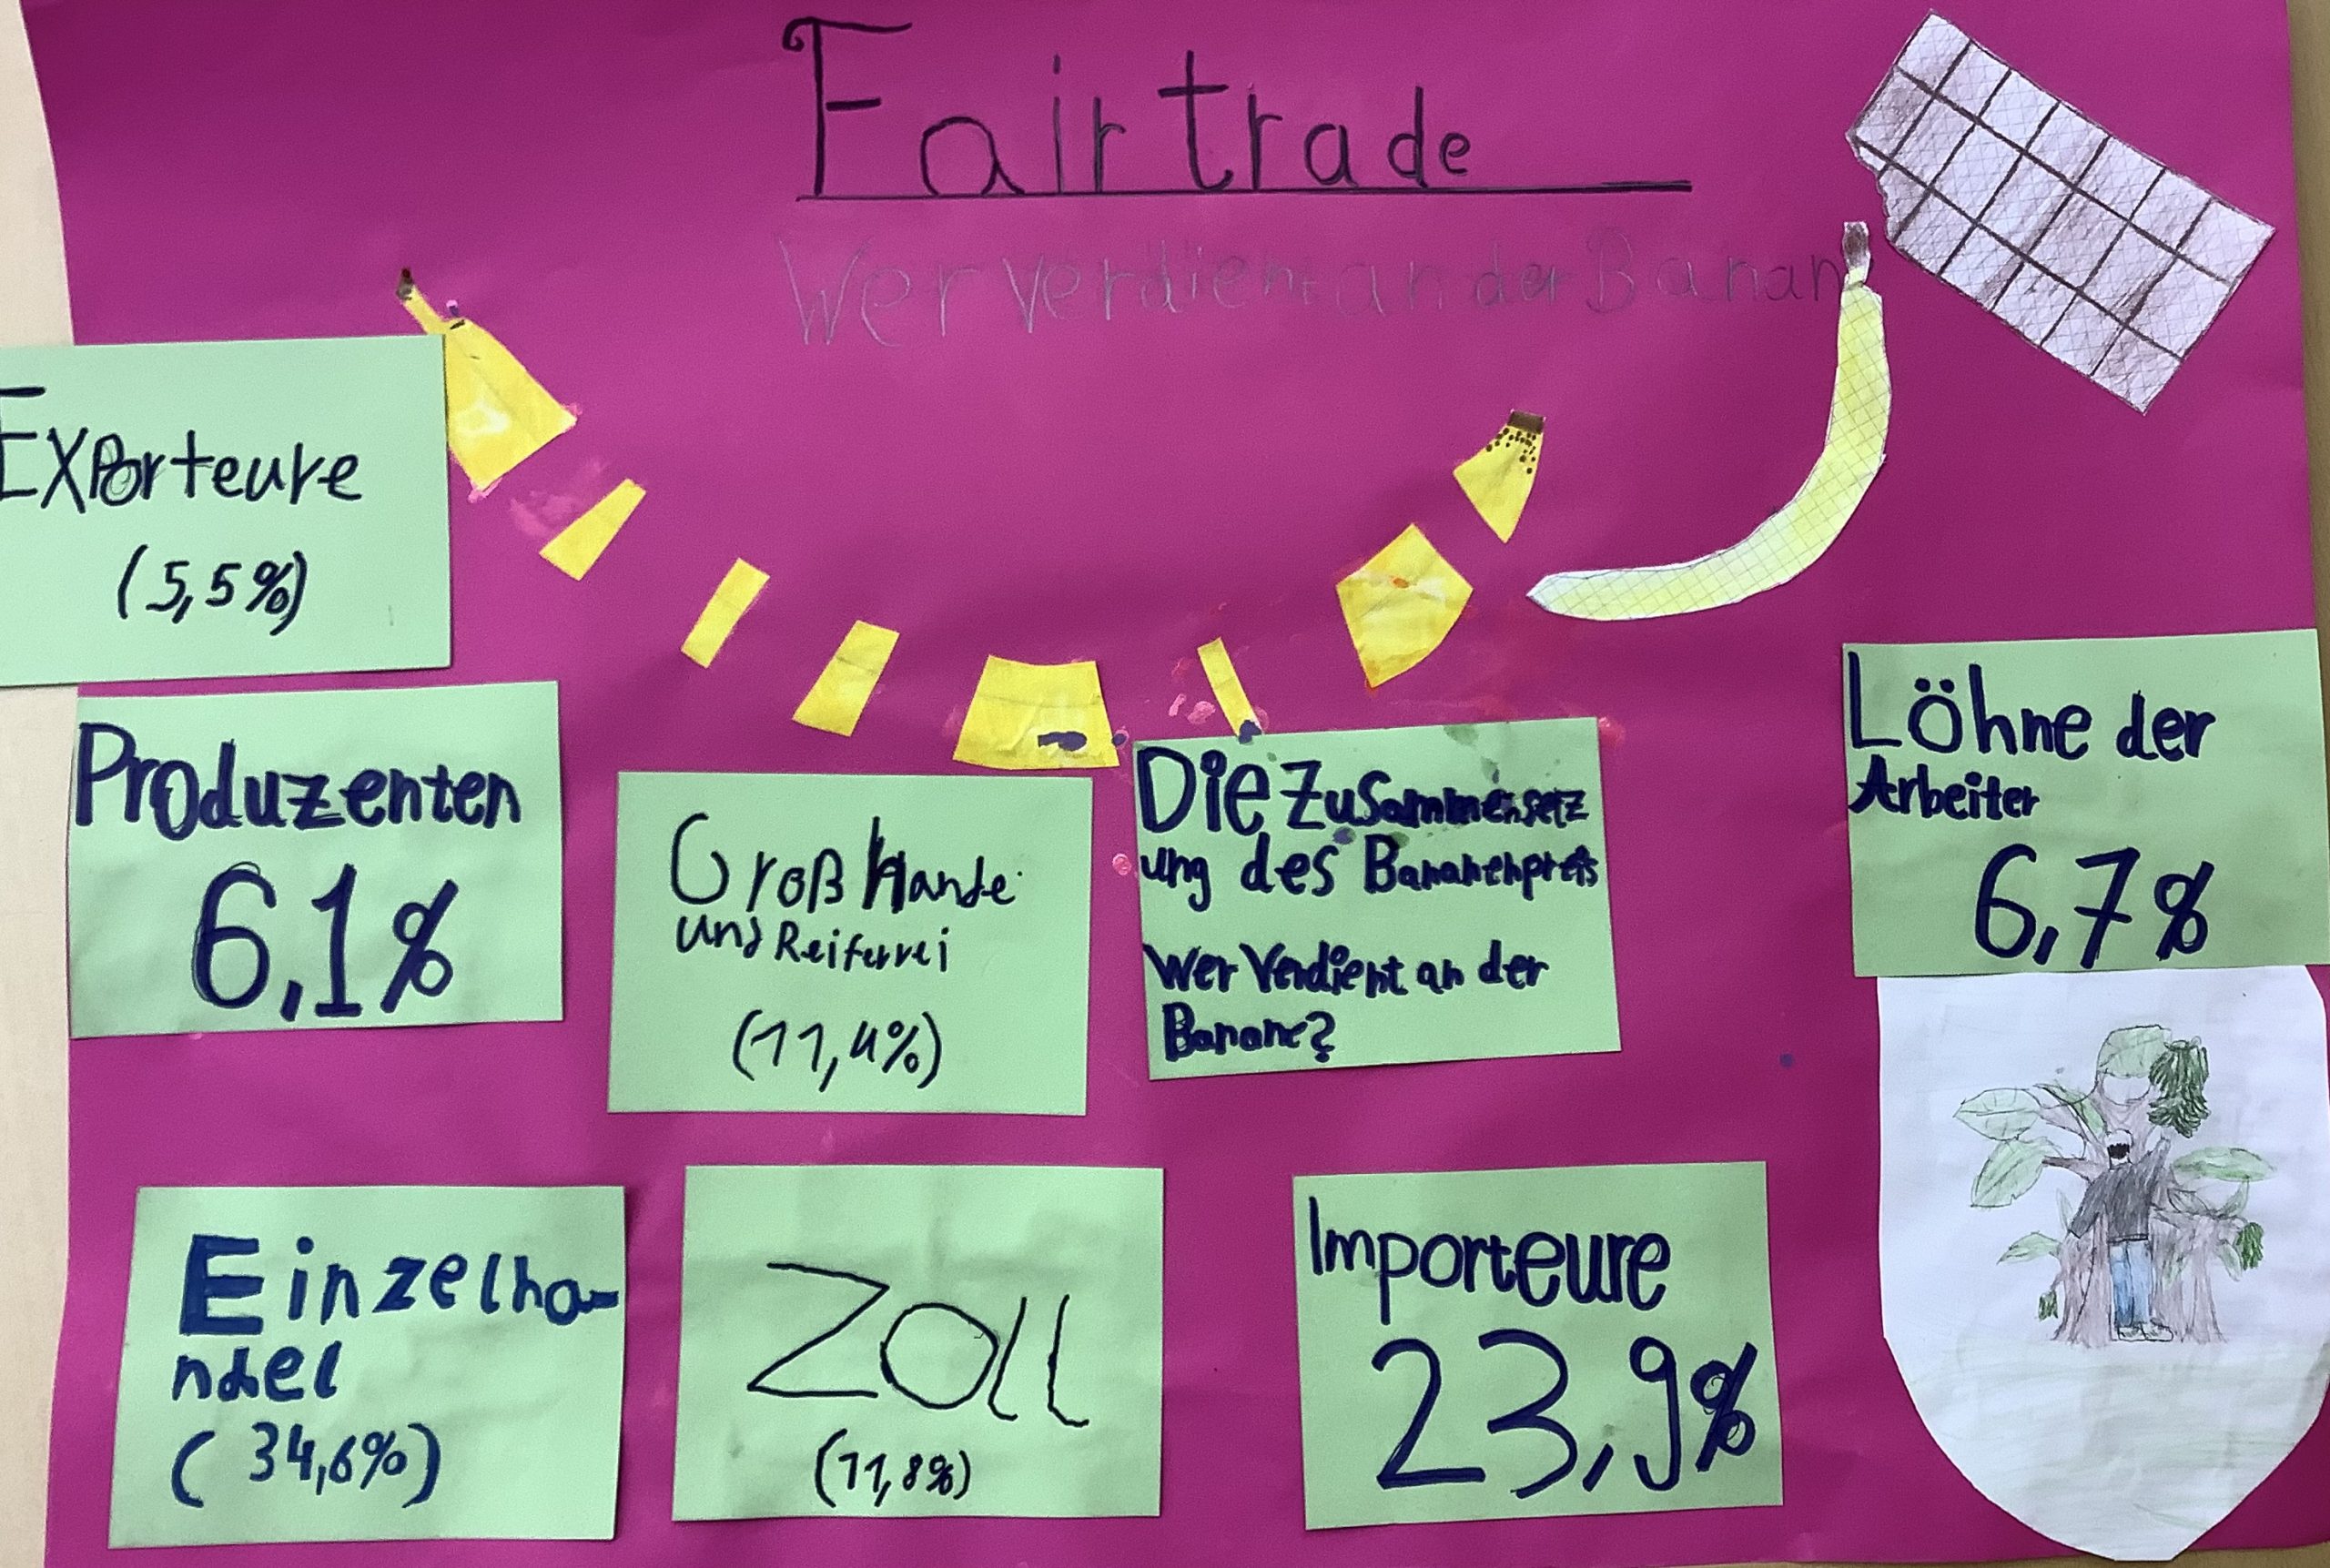 Fairtrade
Wer verdient an der Banan
Exporteure
(5,5%)
Produzenten
6,1%
Groß Hande
und Reiferrei
(11,4%)
Die Zusammensetz
ung des Bananenpreis
Wer Verdient an der
Banane?
Löhne der
Arbeiter
6,7%
Einzelha-
ndel
(34,6%)
Zoll
(11,8%)
Importeure
23,9%